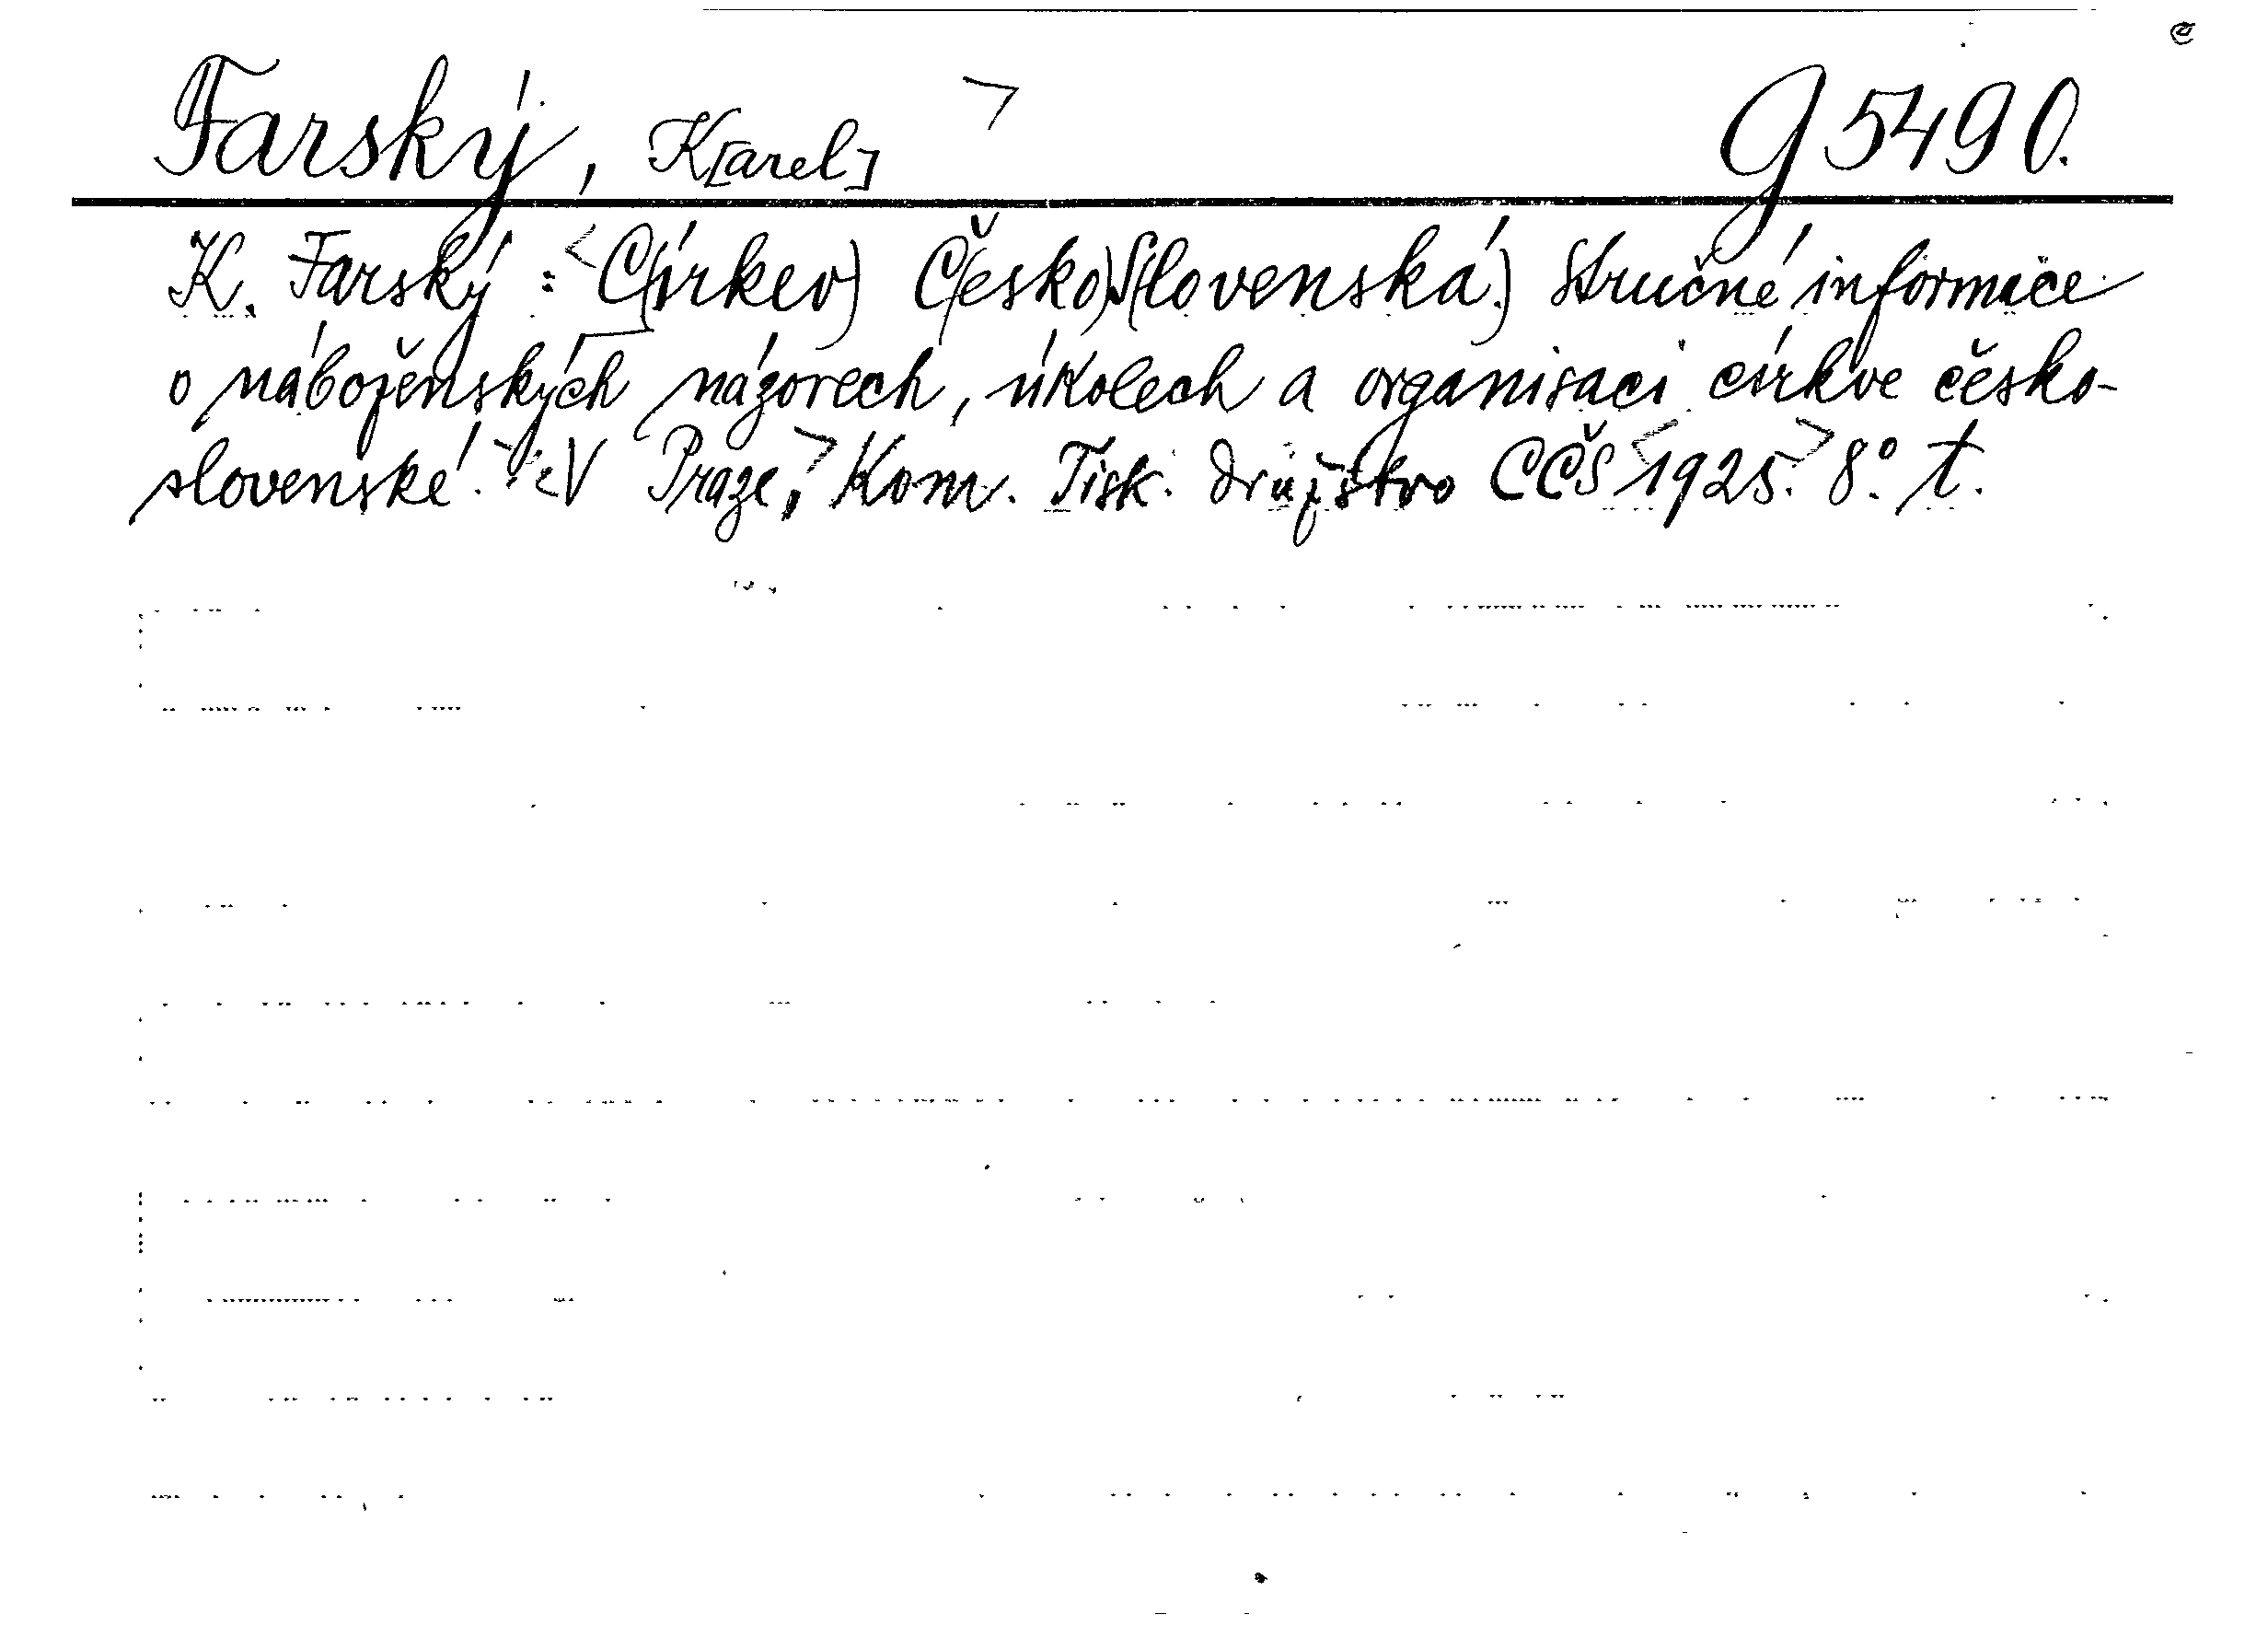 Farský, K[arel] G 5490.
K. Farský: C(írkev) Č(esko)S(lovenská.) Stručné informace
o náboženských názorech, úkolech a organisaci církve česko-
slovenské. V Praze, Kom. Tisk. družstvo CČS 1925. 8°. t.